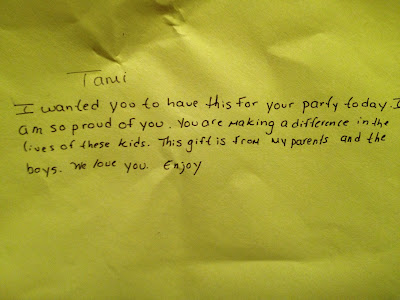 Tami
I wanted you to have this for your party today. I
am so proud of you. You are making a difference in the
lives of these kids. This gift is from my parents and the
boys. We love you. Enjoy